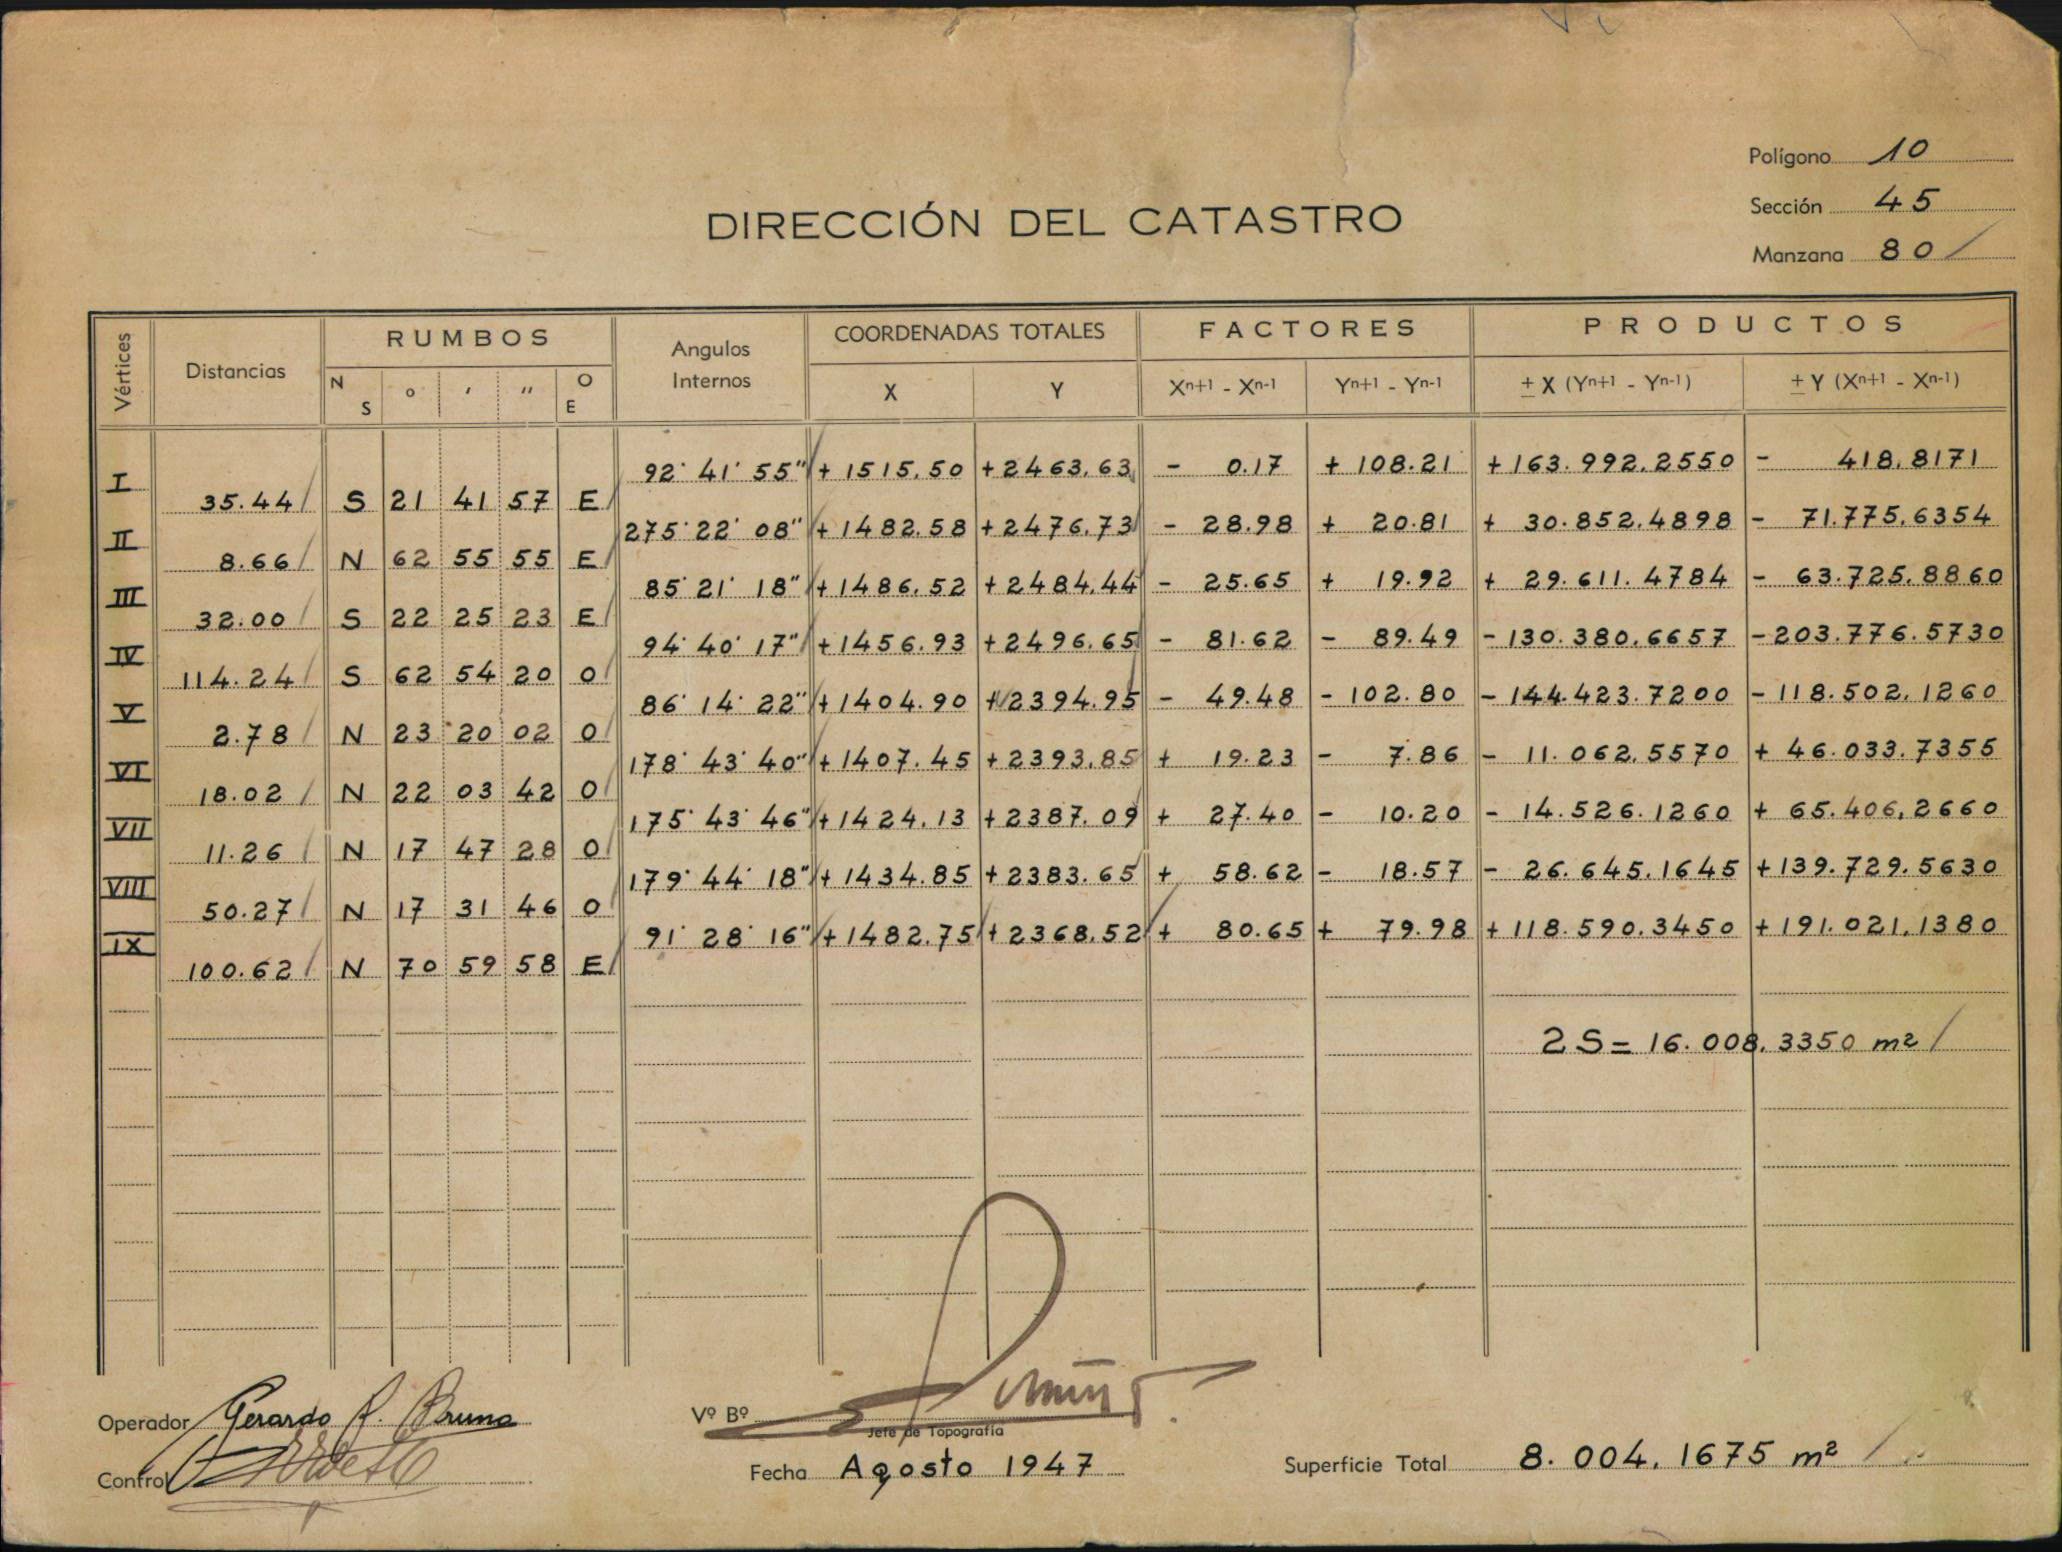 Polígono 10
Sección 45
Manzana 80
DIRECCIÓN DEL CATASTRO
Vértices Distancias RUMBOS Angulos Internos COORDENADAS TOTALES FACTORES PRODUCTOS
N S ° ' " O E X Y Xn+1 - Xn-1 Yn+1 - Yn-1 ± X (Yn+1 - Yn-1) ± Y (Xn+1 - Xn-1)
92° 41' 55" + 1515.50 + 2463.63 - 0.17 + 108.21 + 163.992.2550 - 418.8171
I 35.44 S 21 41 57 E
275° 22' 08" + 1482.58 + 2476.73 - 28.98 + 20.81 + 30.852.4898 - 71.775.6354
II 8.66 N 62 55 55 E
85° 21' 18" + 1486.52 + 2484.44 - 25.65 + 19.92 + 29.611.4784 - 63.725.8860
III 32.00 S 22 25 23 E
94° 40' 17" + 1456.93 + 2496.65 - 81.62 - 89.49 - 130.380.6657 - 203.776.5730
IV 114.24 S 62 54 20 O
86° 14' 22" + 1404.90 + 2394.95 - 49.48 - 102.80 - 144.423.7200 - 118.502.1260
V 2.78 N 23 20 02 O
178° 43' 40" + 1407.45 + 2393.85 + 19.23 - 7.86 - 11.062.5570 + 46.033.7355
VI 18.02 N 22 03 42 O
175° 43' 46" + 1424.13 + 2387.09 + 27.40 - 10.20 - 14.526.1260 + 65.406.2660
VII 11.26 N 17 47 28 O
179° 44' 18" + 1434.85 + 2383.65 + 58.62 - 18.57 - 26.645.1645 + 139.729.5630
VIII 50.27 N 17 31 46 O
91° 28' 16" + 1482.75 + 2368.52 + 80.65 + 79.98 + 118.590.3450 + 191.021.1380
IX 100.62 N 70 59 58 E
2 S = 16.008.3350 m²
Operador Gerardo R. Bruno
Vº Bº
Jefe de Topografía
Control
Fecha Agosto 1947
Superficie Total 8.004.1675 m²